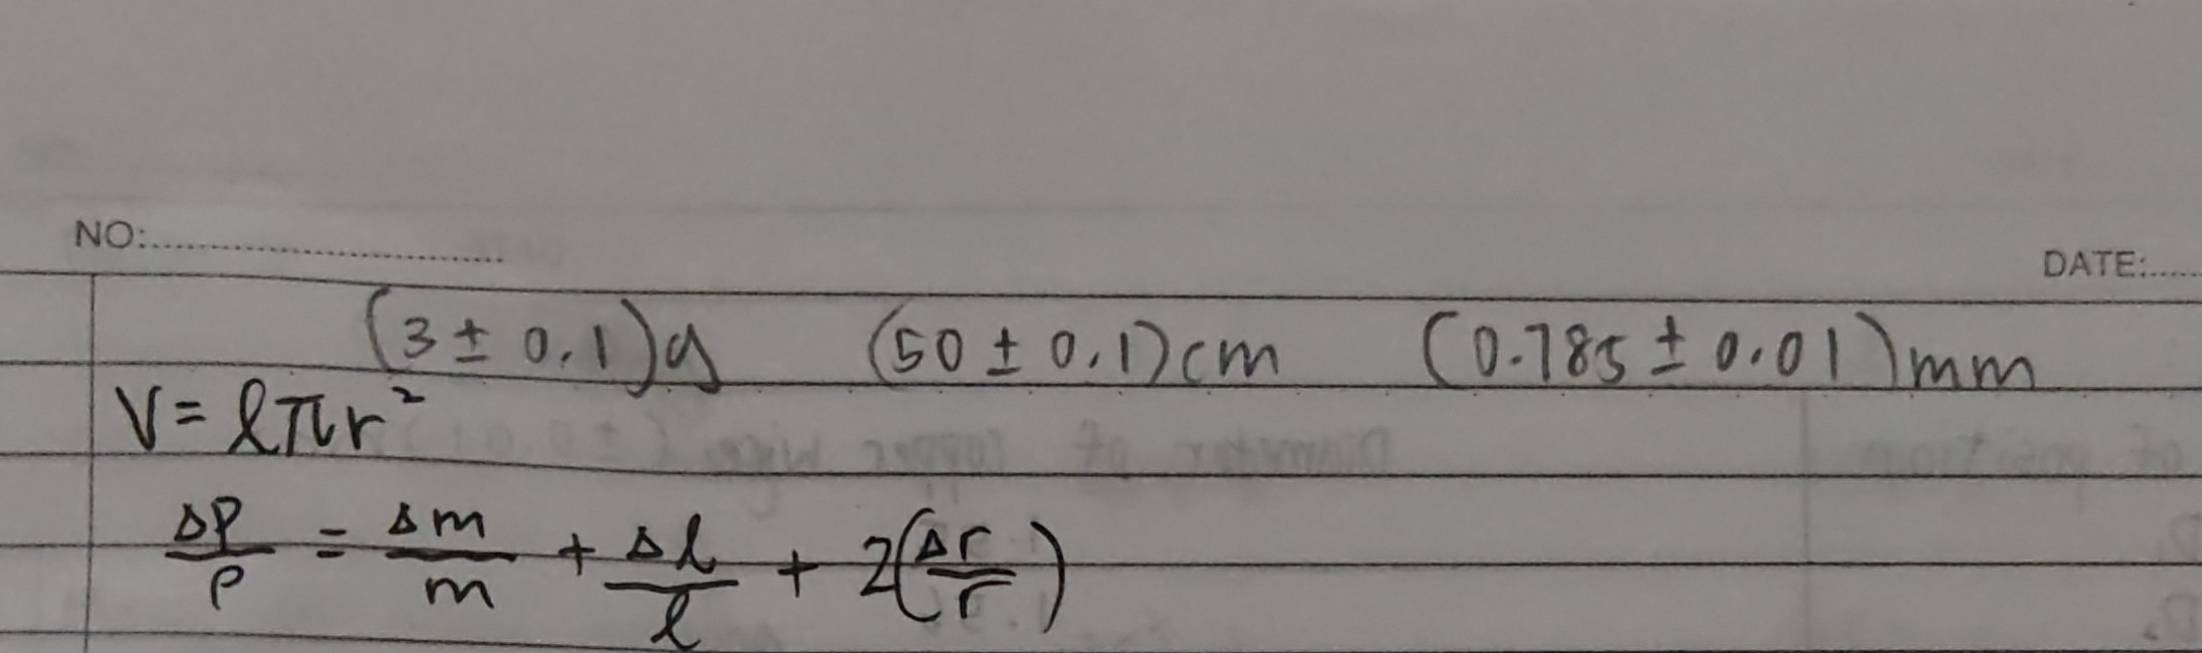 NO:.............................. DATE:......
(3 ± 0.1)g (50 ± 0.1)cm (0.785 ± 0.01)mm
V = ℓπr²
Δρ/ρ = Δm/m + Δℓ/ℓ + 2(Δr/r)